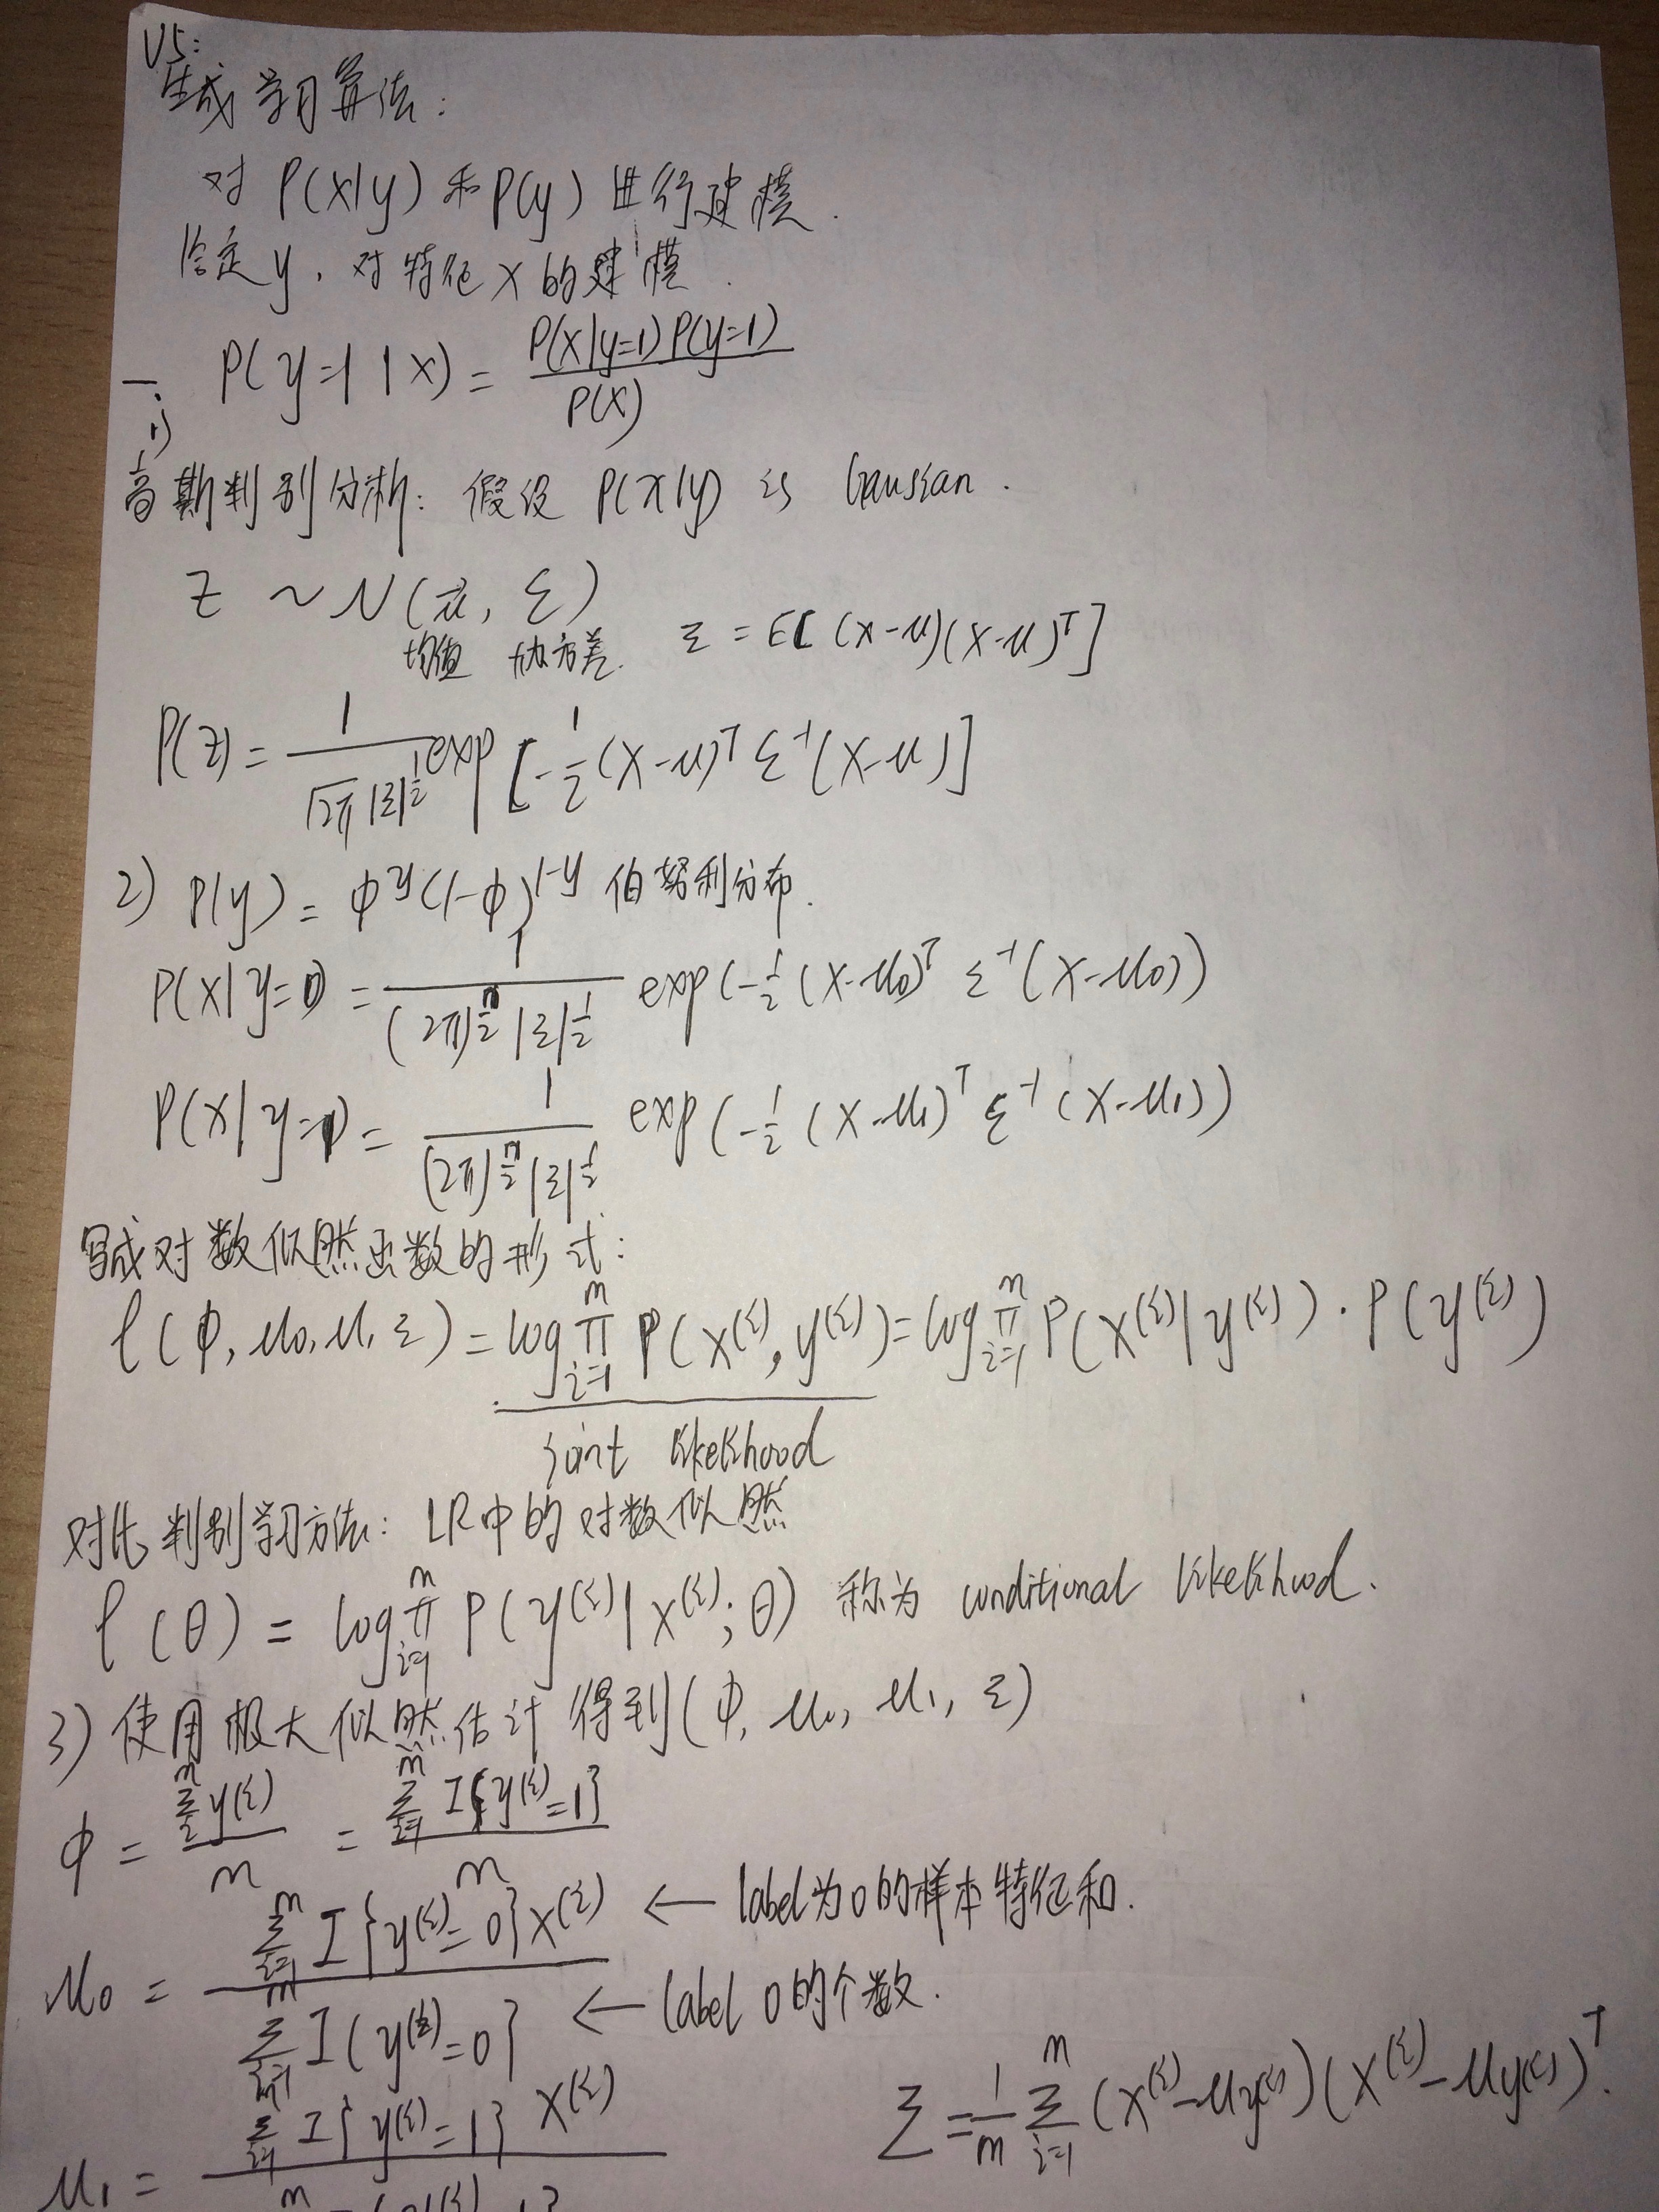 V5:
生成学习算法:
对 P(x|y) 和 P(y) 进行建模.
给定 y, 对特征 x 的建模.
一. P(y=1 | x) = P(x|y=1)P(y=1) / P(x)
1)
高斯判别分析: 假设 P(x|y) is Gaussian.
Z ~ N(μ⃗, Σ)
均值 协方差. Σ = E[(x-μ)(x-μ)ᵀ]
P(z) = 1 / (√2π |Σ|^½) exp[-½(x-μ)ᵀ Σ⁻¹(x-μ)]
2) P(y) = φ^y (1-φ)^(1-y) 伯努利分布.
P(x|y=0) = 1 / ((2π)^(n/2) |Σ|^½) exp(-½(x-μ₀)ᵀ Σ⁻¹(x-μ₀))
P(x|y=1) = 1 / ((2π)^(n/2) |Σ|^½) exp(-½(x-μ₁)ᵀ Σ⁻¹(x-μ₁))
写成对数似然函数的形式:
ℓ(φ, μ₀, μ₁ Σ) = log ∏_{i=1}^m P(x^(i), y^(i)) = log ∏_{i=1}^m P(x^(i)|y^(i)) · P(y^(i))
joint likelihood
对比判别学习方法: LR中的对数似然
ℓ(θ) = log ∏_{i=1}^m P(y^(i)|x^(i); θ) 称为 conditional likelihood.
3) 使用极大似然估计得到(φ, μ₀, μ₁, Σ)
φ = Σ^m y^(i) / m = Σ_{i=1}^m I{y^(i)=1} / m
μ₀ = Σ_{i=1}^m I{y^(i)=0}x^(i) / Σ_{i=1}^m I{y^(i)=0}
← label为0的样本特征和.
← label 0的个数.
μ₁ = Σ_{i=1}^m I{y^(i)=1} x^(i) /
Σ = 1/m Σ_{i=1}^m (x^(i)-μy^(i))(x^(i)-μy^(i))ᵀ.